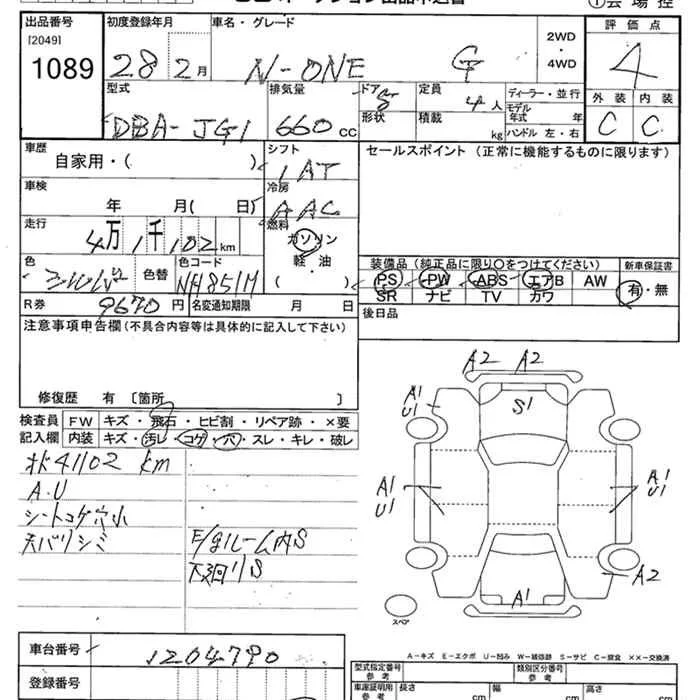 出品番号 初度登録年月 車名・グレード 評価点
[2049]
1089 28 2月 N-ONE G 2WD ・ 4WD 4
外装 内装
C C
型式 排気量 ドア 定員 ディーラー・並行
DBA-JG1 660 cc 5 4人 モデル年式 年
形状 積載 kg ハンドル 左・右
車歴 シフト セールスポイント (正常に機能するものに限ります)
自家用・( ) 1AT
車検 冷房
年 月( 日) AAC
走行 燃料
4万1千102km ガソリン
軽・油
( )
色 シルバー 色替 色コード NH851M
装備品 (純正品に限り○をつけてください) 新車保証書
PS PW ABS エアB AW 有・無
SR ナビ TV カワ
R券 9670円 名変通知期限 月 日 後日品
注意事項申告欄(不具合内容等は具体的に記入して下さい)
修復歴 有 〔箇所 〕
検査員記入欄 FW キズ・飛石・ヒビ割・リペア跡・×要
内装 キズ・汚レ・コゲ・穴・スレ・キレ・破レ
41102 km
A.U
シートコゲ穴小
天バリシミ
ルーム内S
下廻りS
A2 A2
A1
U1
S1
A1
U1
A1
U1
A2
A1
スペア
A-キズ E-エクボ U-凹み W-補修跡 S-サビ C-腐食 ××-交換済
車台番号 1204790
型式指定番号 参考 類別区分番号 参考
登録番号
車庫証明用 参考 長さ cm 幅 cm 高さ cm